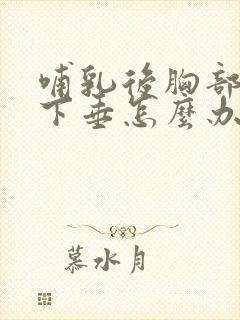 哺乳後胸部
下垂怎麼办
慕水月